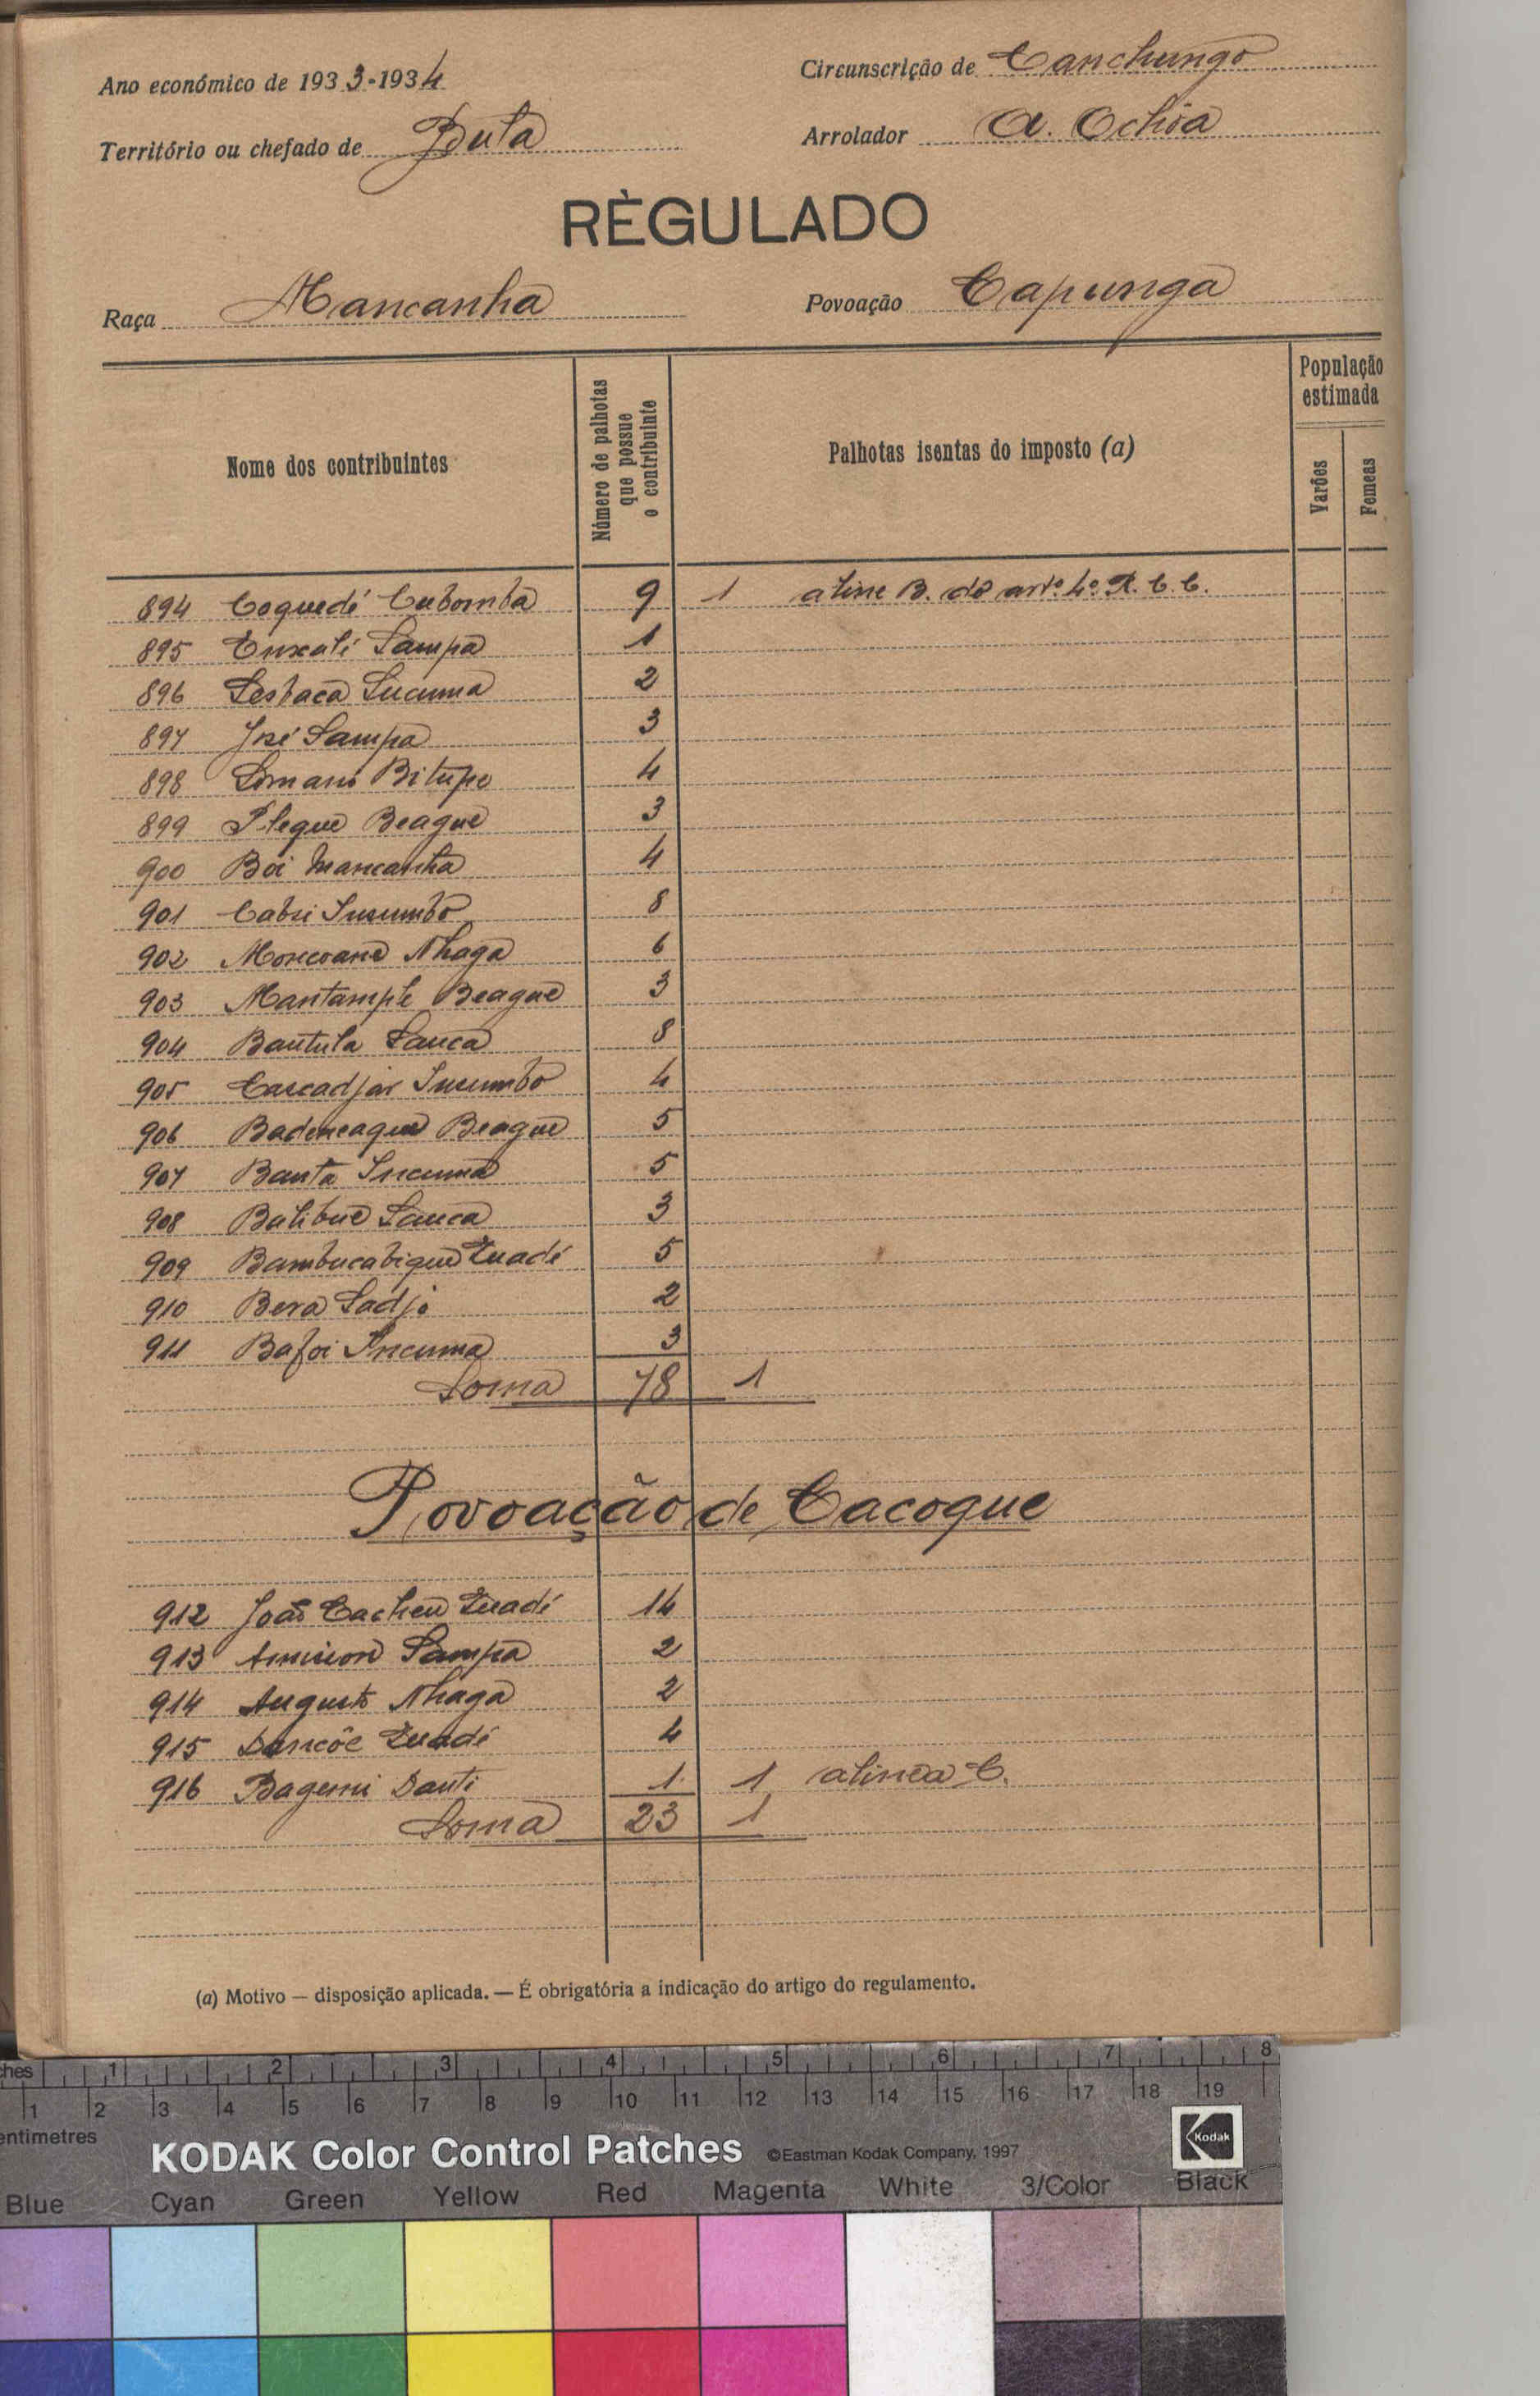 Ano económico de 1933-1934
Circunscrição de Canchungo
Território ou chefado de Bula
Arrolador A. Ochôa
RÈGULADO
Raça Mancanha
Povoação Capunga
Nome dos contribuintes
Número de palhotas que possue o contribuinte
Palhotas isentas do imposto (a)
População estimada
Varões
Femeas
894 Coquedé Cubomba 9 1 aline B. do artº 4º R. C. C.
895 Sampa 1
896 2
897 José Sampa 3
898 Bitupe 4
899 Beague 3
900 Boi Mancanha 4
901 Cabsi 8
902 Nhaga 6
903 Mantample Beague 3
904 Bantula Sanca 8
905 Cascadjar 4
906 Badencague Beague 5
907 Banta 5
908 Balibue Sanca 3
909 Bambucabique 5
910 Bera Sadjo 2
911 Bafoi 3
Soma 78 1
Povoação de Cacoque
912 João Cacheu 14
913 Sampa 2
914 Augusto Nhaga 2
915 4
916 Bagemi Danti 1 1 alinea C.
Soma 23 1
(a) Motivo — disposição aplicada. — É obrigatória a indicação do artigo do regulamento.
ches 1 2 3 4 5 6 7 8
1 2 3 4 5 6 7 8 9 10 11 12 13 14 15 16 17 18 19
entimetres
KODAK Color Control Patches ©Eastman Kodak Company, 1997 Kodak
Blue Cyan Green Yellow Red Magenta White 3/Color Black